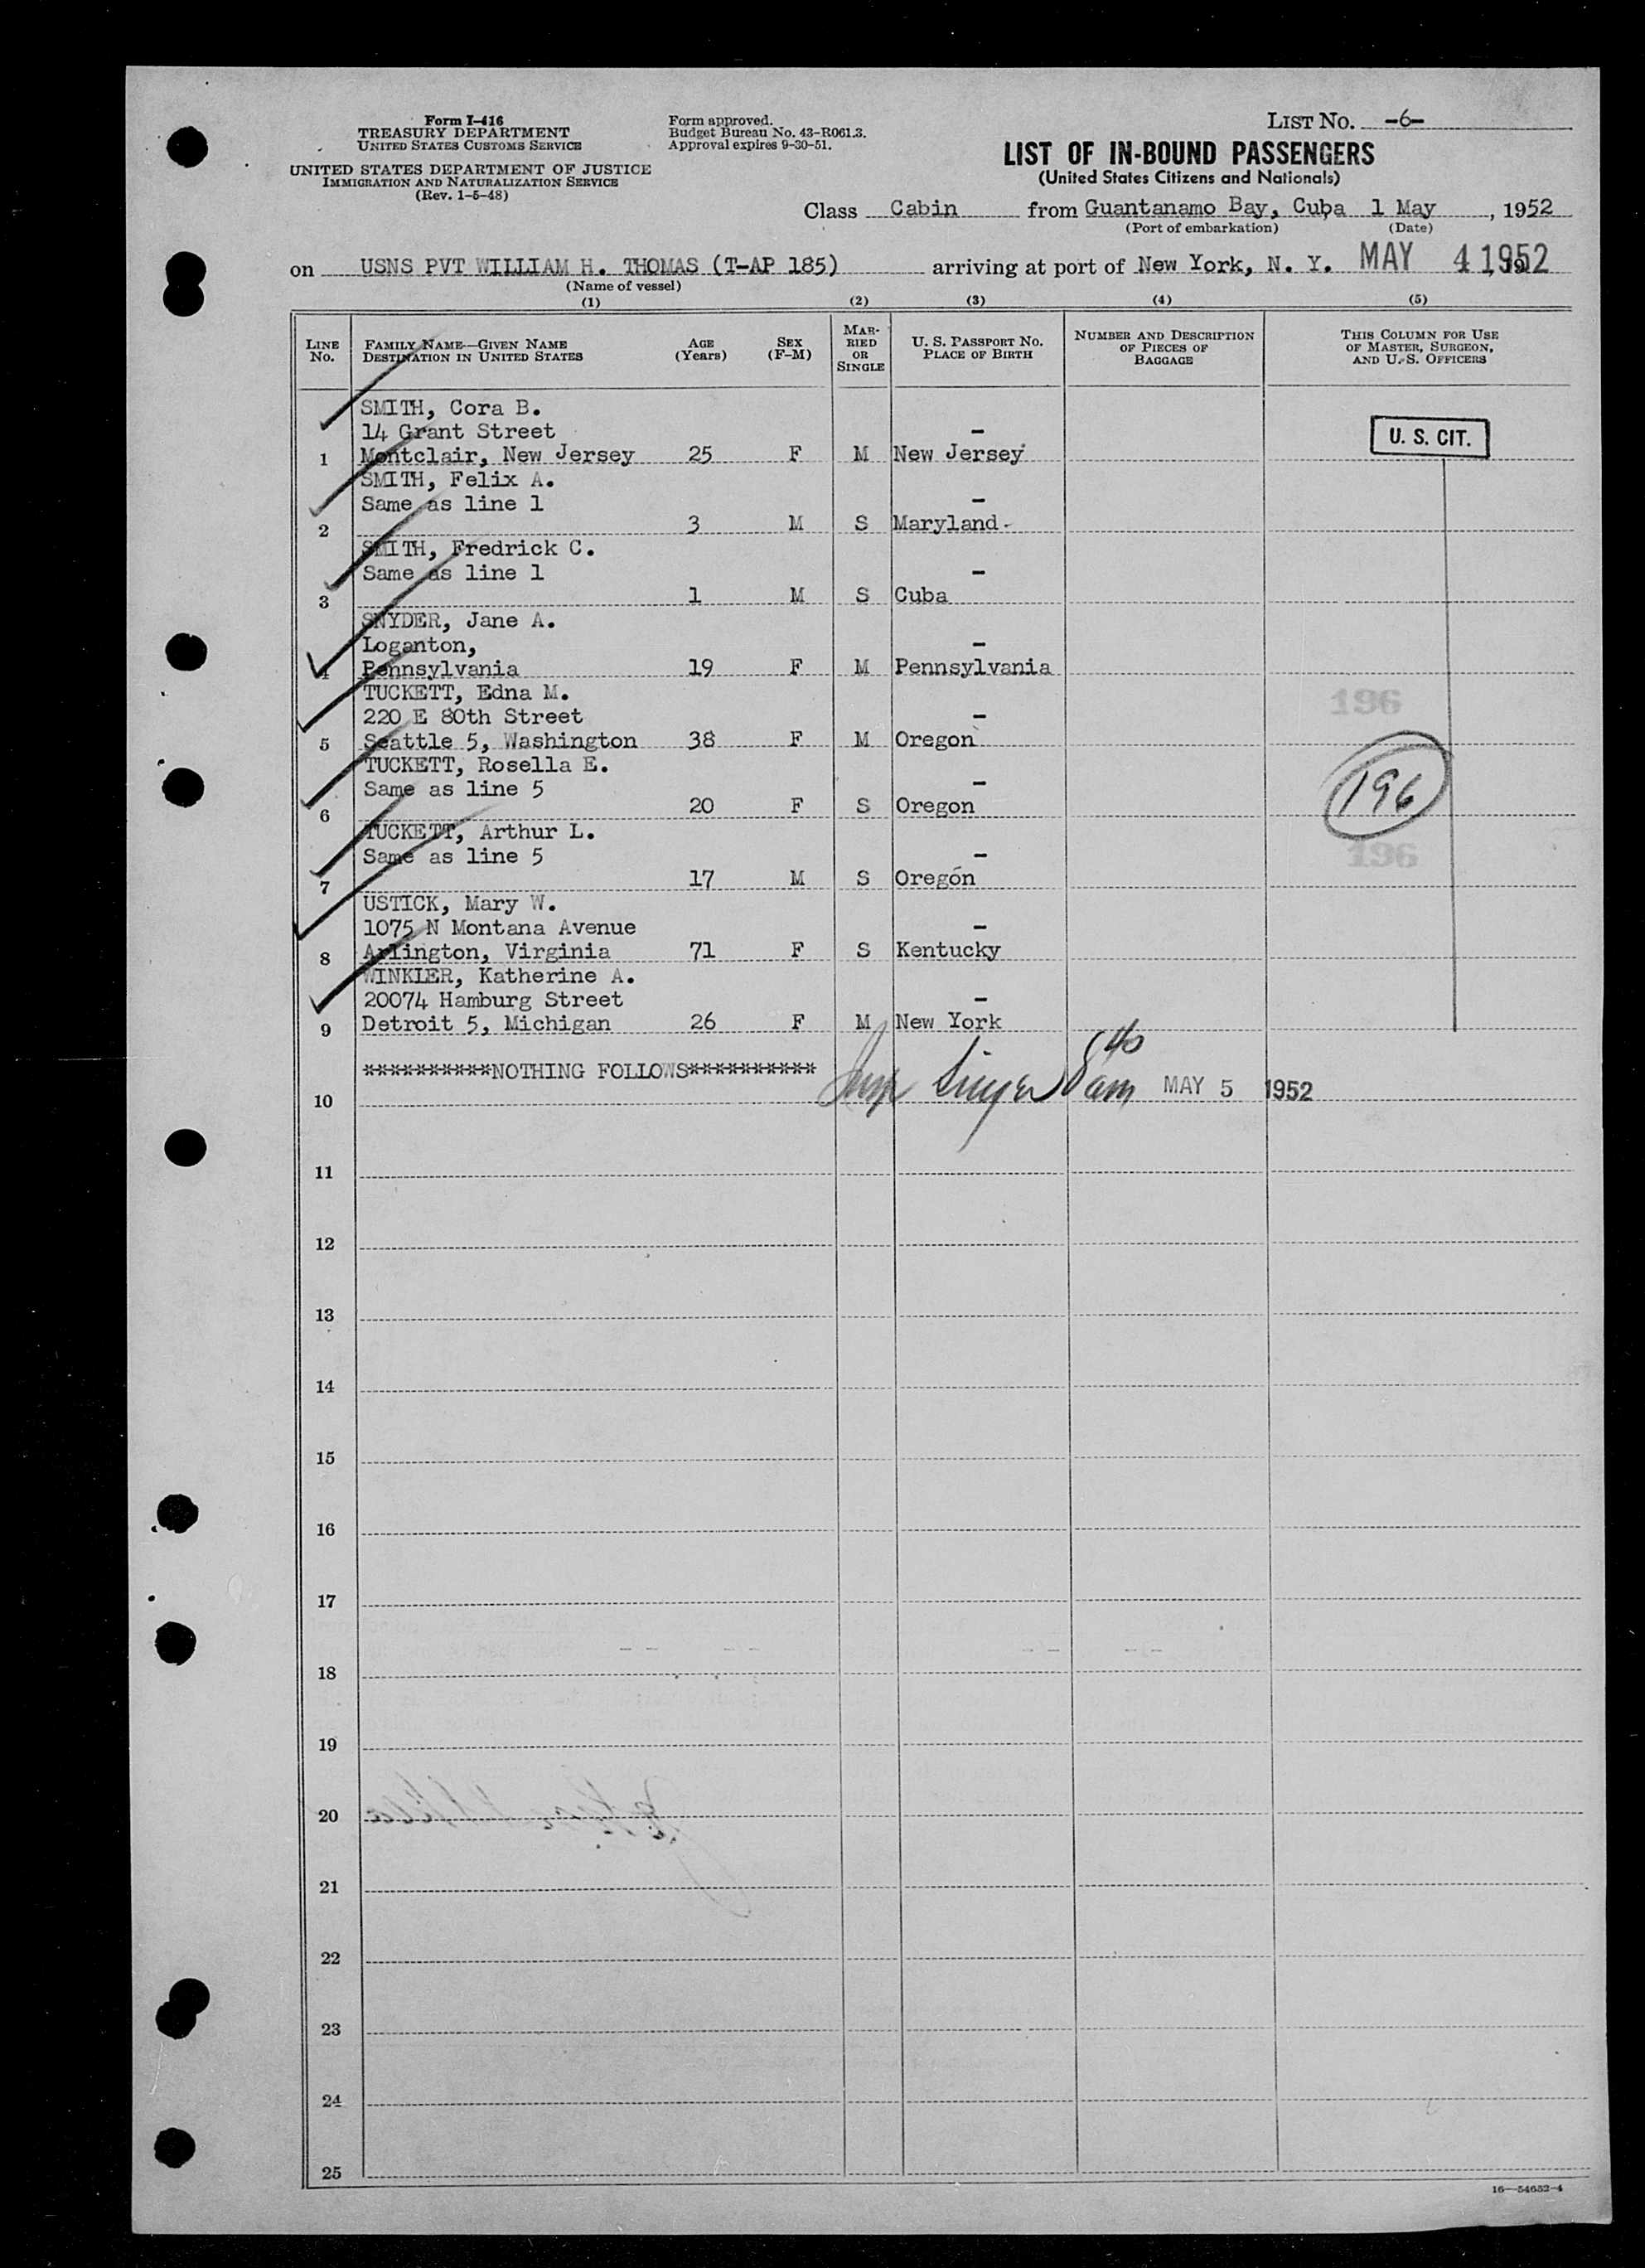 Form I-416
TREASURY DEPARTMENT
UNITED STATES CUSTOMS SERVICE
UNITED STATES DEPARTMENT OF JUSTICE
IMMIGRATION AND NATURALIZATION SERVICE
(Rev. 1-5-48)
Form approved.
Budget Bureau No. 43-R061.3.
Approval expires 9-30-51.
LIST NO. -6-
LIST OF IN-BOUND PASSENGERS
(United States Citizens and Nationals)
Class Cabin from Guantanamo Bay, Cuba 1 May, 1952
(Port of embarkation) (Date)
on USNS PVT WILLIAM H. THOMAS (T-AP 185) arriving at port of New York, N. Y. MAY 4 1952
(Name of vessel)
(1) (2) (3) (4) (5)
LINE NO. FAMILY NAME—GIVEN NAME DESTINATION IN UNITED STATES AGE (Years) SEX (F-M) MARRIED OR SINGLE U. S. PASSPORT NO. PLACE OF BIRTH NUMBER AND DESCRIPTION OF PIECES OF BAGGAGE THIS COLUMN FOR USE OF MASTER, SURGEON, AND U. S. OFFICERS
SMITH, Cora B.
14 Grant Street - U. S. CIT.
1 Montclair, New Jersey 25 F M New Jersey
SMITH, Felix A.
Same as line 1 -
2 3 M S Maryland
SMITH, Fredrick C.
Same as line 1 -
3 1 M S Cuba
SNYDER, Jane A.
Loganton, -
4 Pennsylvania 19 F M Pennsylvania
TUCKETT, Edna M. 196
220 E 80th Street -
5 Seattle 5, Washington 38 F M Oregon
TUCKETT, Rosella E.
Same as line 5 - 196
6 20 F S Oregon
TUCKETT, Arthur L.
Same as line 5 - 196
7 17 M S Oregon
USTICK, Mary W.
1075 N Montana Avenue -
8 Arlington, Virginia 71 F S Kentucky
WINKLER, Katherine A.
20074 Hamburg Street -
9 Detroit 5, Michigan 26 F M New York
**********NOTHING FOLLOWS**********
10 Singer 8 40 am MAY 5 1952
11
12
13
14
15
16
17
18
19
20
21
22
23
24
25
16—54652-4